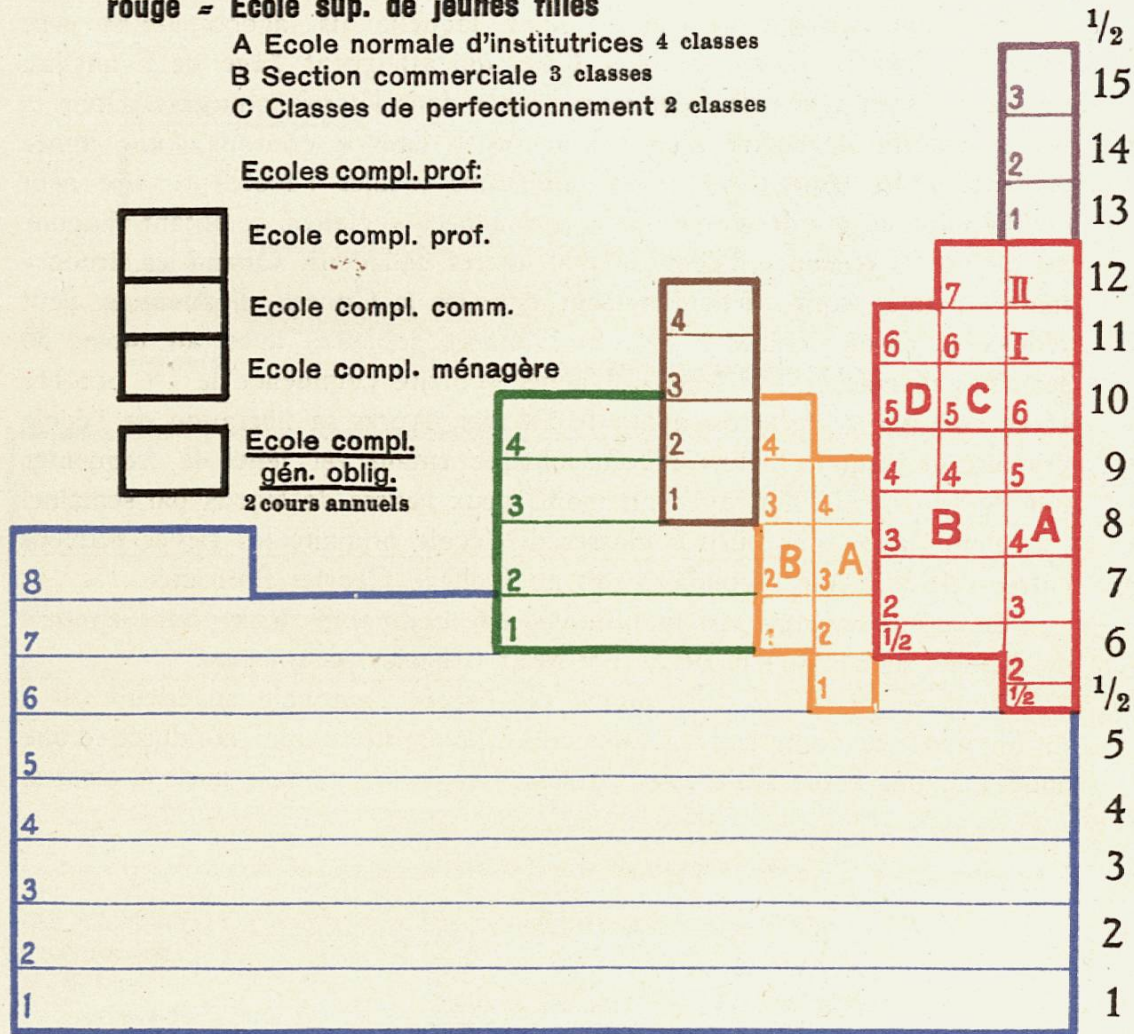 rouge = Ecole sup. de jeunes filles
A Ecole normale d'institutrices 4 classes
B Section commerciale 3 classes
C Classes de perfectionnement 2 classes
Ecoles compl. prof:
Ecole compl. prof.
Ecole compl. comm.
Ecole compl. ménagère
Ecole compl.
gén. oblig.
2 cours annuels
8
7
6
5
4
3
2
1
4
3
2
1
4
3
2
1
4
3
2
1
B
4
3
2
1
A
6
5
4
3
2
1/2
D
7
6
5
4
C
B
II
I
6
5
4
3
2
1/2
A
3
2
1
1/2
15
14
13
12
11
10
9
8
7
6
1/2
5
4
3
2
1